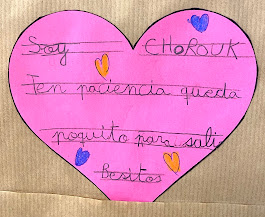 Soy CHOROUK
Ten paciencia queda
poquito para sali
Besitos